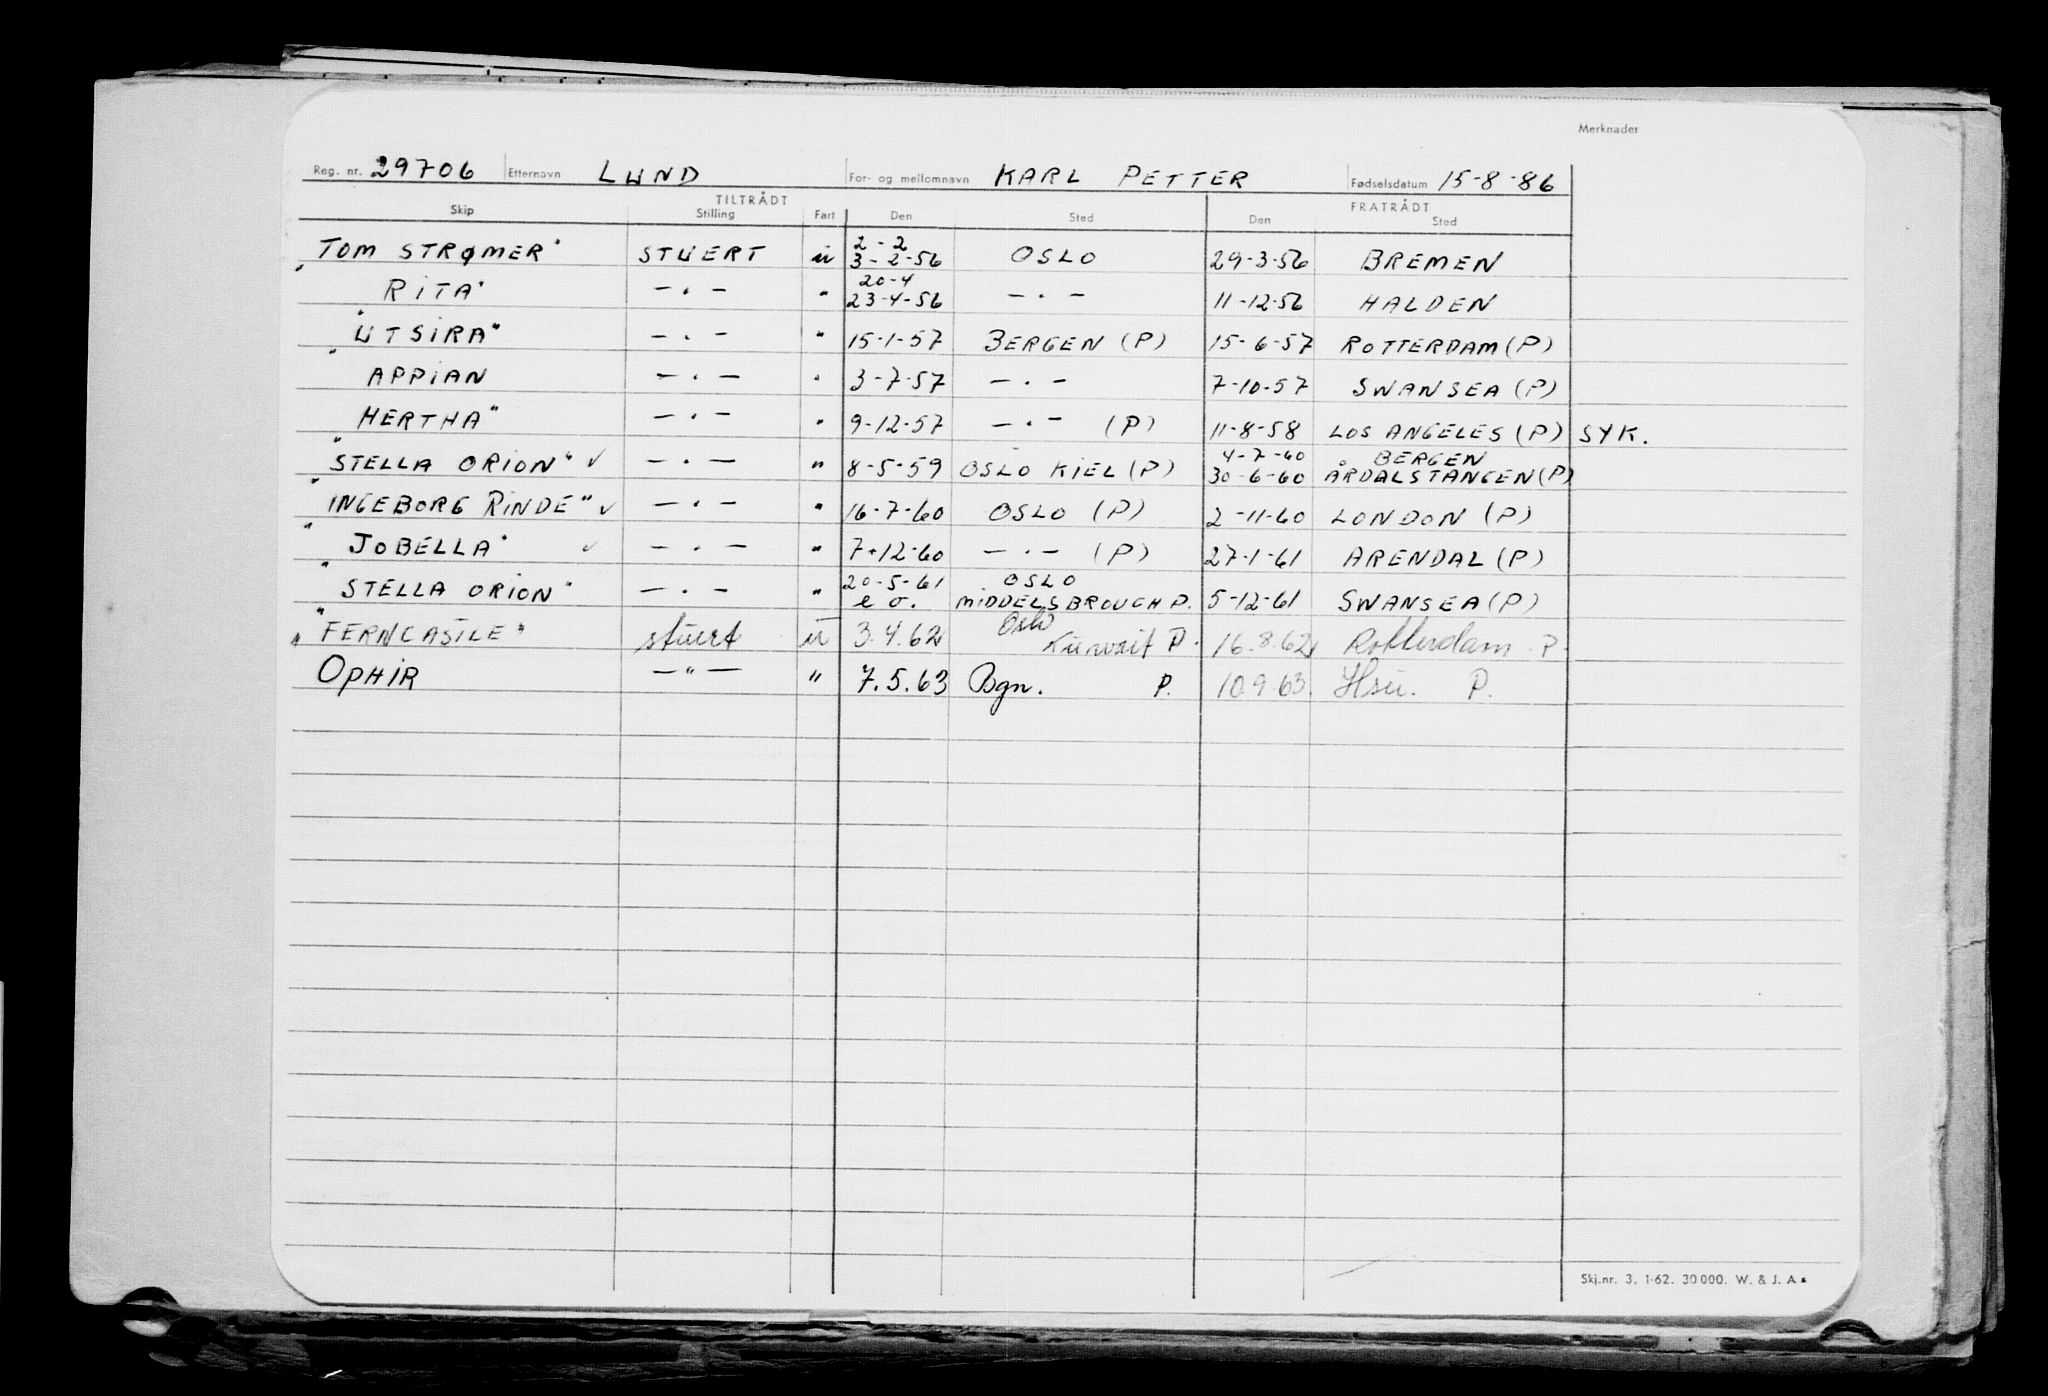 Merknader
Reg. nr. 29706 Etternavn LUND For- og mellomnavn KARL PETTER Fødselsdatum 15-8-86
TILTRÅDT FRATRÅDT
Skip Stilling Fart Den Sted Den Sted
2-2
TOM STRØMER" STUERT u 3-2-56 OSLO 29-3-56 BREMEN
20-4
"RITA" —.— " 23-4-56 —.— 11-12-56 HALDEN
"UTSIRA" —.— " 15-1-57 BERGEN (P) 15-6-57 ROTTERDAM (P)
"APPIAN —.— " 3-7-57 —.— 7-10-57 SWANSEA (P)
HERTHA" —.— " 9-12-57 —.— (P) 11-8-58 LOS ANGELES (P) SYK.
4-7-60 BERGEN
"STELLA ORION" ✓ —.— " 8-5-59 OSLO KIEL (P) 30-6-60 ÅRDALSTANGEN (P)
"INGEBORG RINDE" ✓ —.— " 16-7-60 OSLO (P) 2-11-60 LONDON (P)
"JOBELLA" ✓ —.— " 7-12-60 —.— (P) 27-1-61 ARENDAL (P)
20-5-61 OSLO
"STELLA ORION" —.— " e o. MIDDELSBROUGH P. 5-12-61 SWANSEA (P)
Oslo
"FERNCASTLE" stuert u 3.4.62 Kuwait P. 16.8.62 Rotterdam P.
"OPHIR —"— " 7.5.63 Bgn. P. 10.9.63. Hsu. P.
Skj.nr. 3. 1-62. 30 000. W. & J. A s